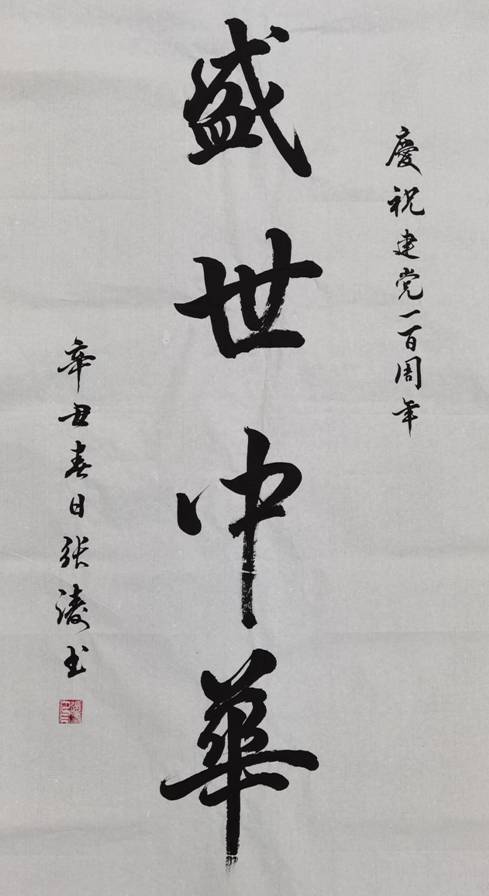 慶祝建党一百周年
盛世中華
辛丑春日张凌书